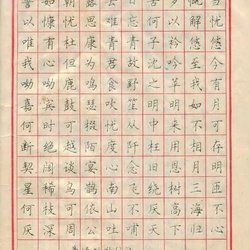 譬如朝露去日苦多慨当
以慷忧思难忘何以解忧
唯有杜康青青子衿悠悠
我心但为君故沉吟至今
呦呦鹿鸣食野之苹我有
嘉宾鼓瑟吹笙明明如月
何时可掇忧从中来不可
断绝越陌度阡枉用相存
契阔谈宴心念旧恩月明
星稀乌鹊南飞绕树三匝
何枝可依山不厌高海不
厌深周公吐哺天下归心